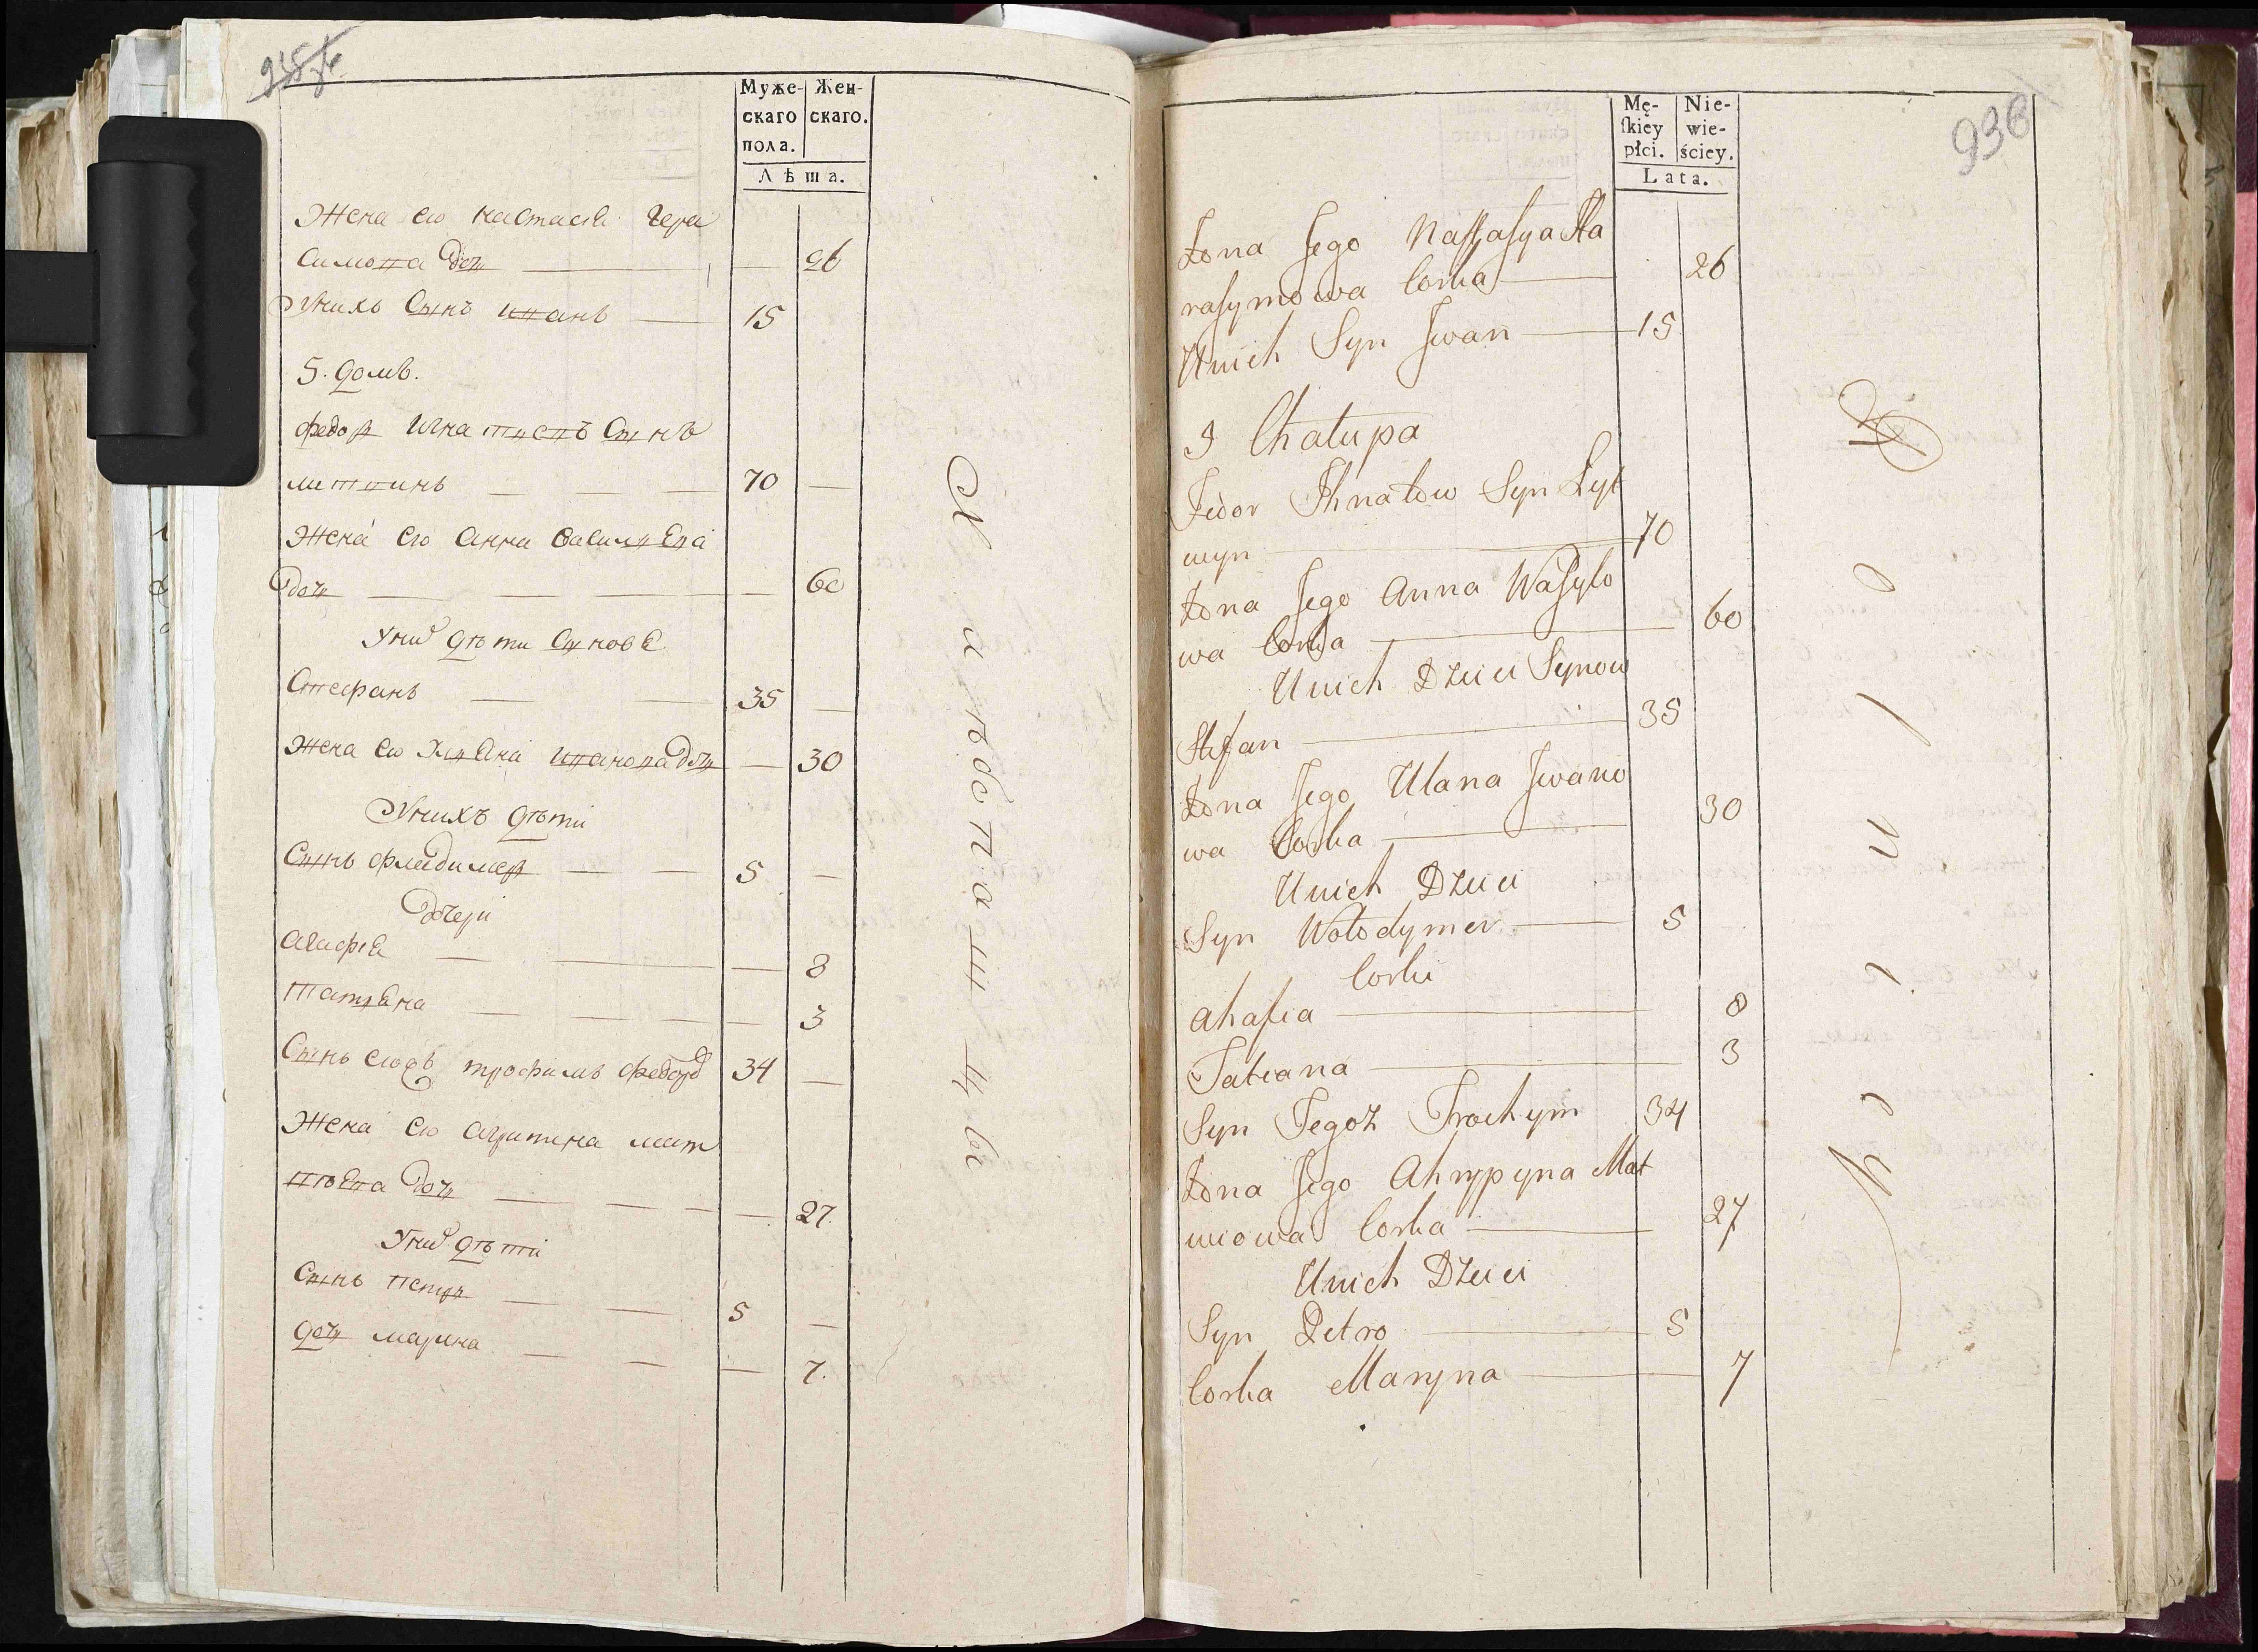 Муже-
скаго
пола.
Жен-
скаго.
Лѣта.
Жена его настасія гера
симова дочь 26
Унихъ Сынъ иванъ 15
5. домъ.
федор игнатiевъ Сынъ
литвинъ 70
Жена его анна василiева
дочь 60
Уних дѣти Синове
Стефанъ 35
Жена его улiана иванова дочь 30
Унихъ дѣти
Сынъ флядимер 5
дочери
агафiя 8
татiяна 3
Сынъ егожъ трофимъ федоров 34
Жена его агрипина мат
вѣева дочь 27.
Уних дѣти
Сынъ петръ 5
дочь марина 7.
936
Mę-
ſkiey
płci.
Nie-
wie-
ściey.
Lata.
Żona Jego Nastasya Ha
rasymowa Corka 26
Unich Syn Jwan 15
5 Chałupa
Fedor Jhnatow Syn Lyt
wyn 70
Żona Jego Anna Wasylo
wa Corka 60
Unich Dzieci Synow
Stefan 35
Żona Jego Ulana Jwano
wa Corka 30
Unich Dzieci
Syn Wołodymer 5
Corki
Ahafia 8
Tatiana 3
Syn Tegoż Trochym 34
Żona Jego Ahrypyna Mat
wiowa Corka 27
Unich Dzieci
Syn Petro 5
Corka Maryna 7